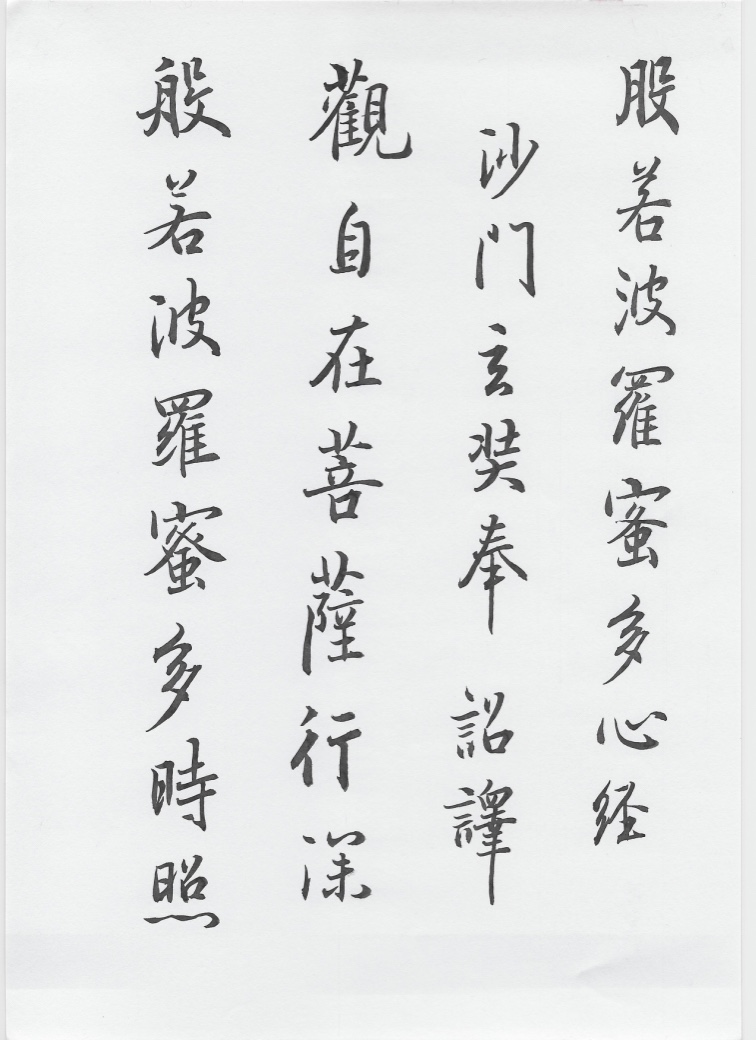 般若波羅蜜多心経
沙門玄奘奉詔譯
觀自在菩薩行深
般若波羅蜜多時照